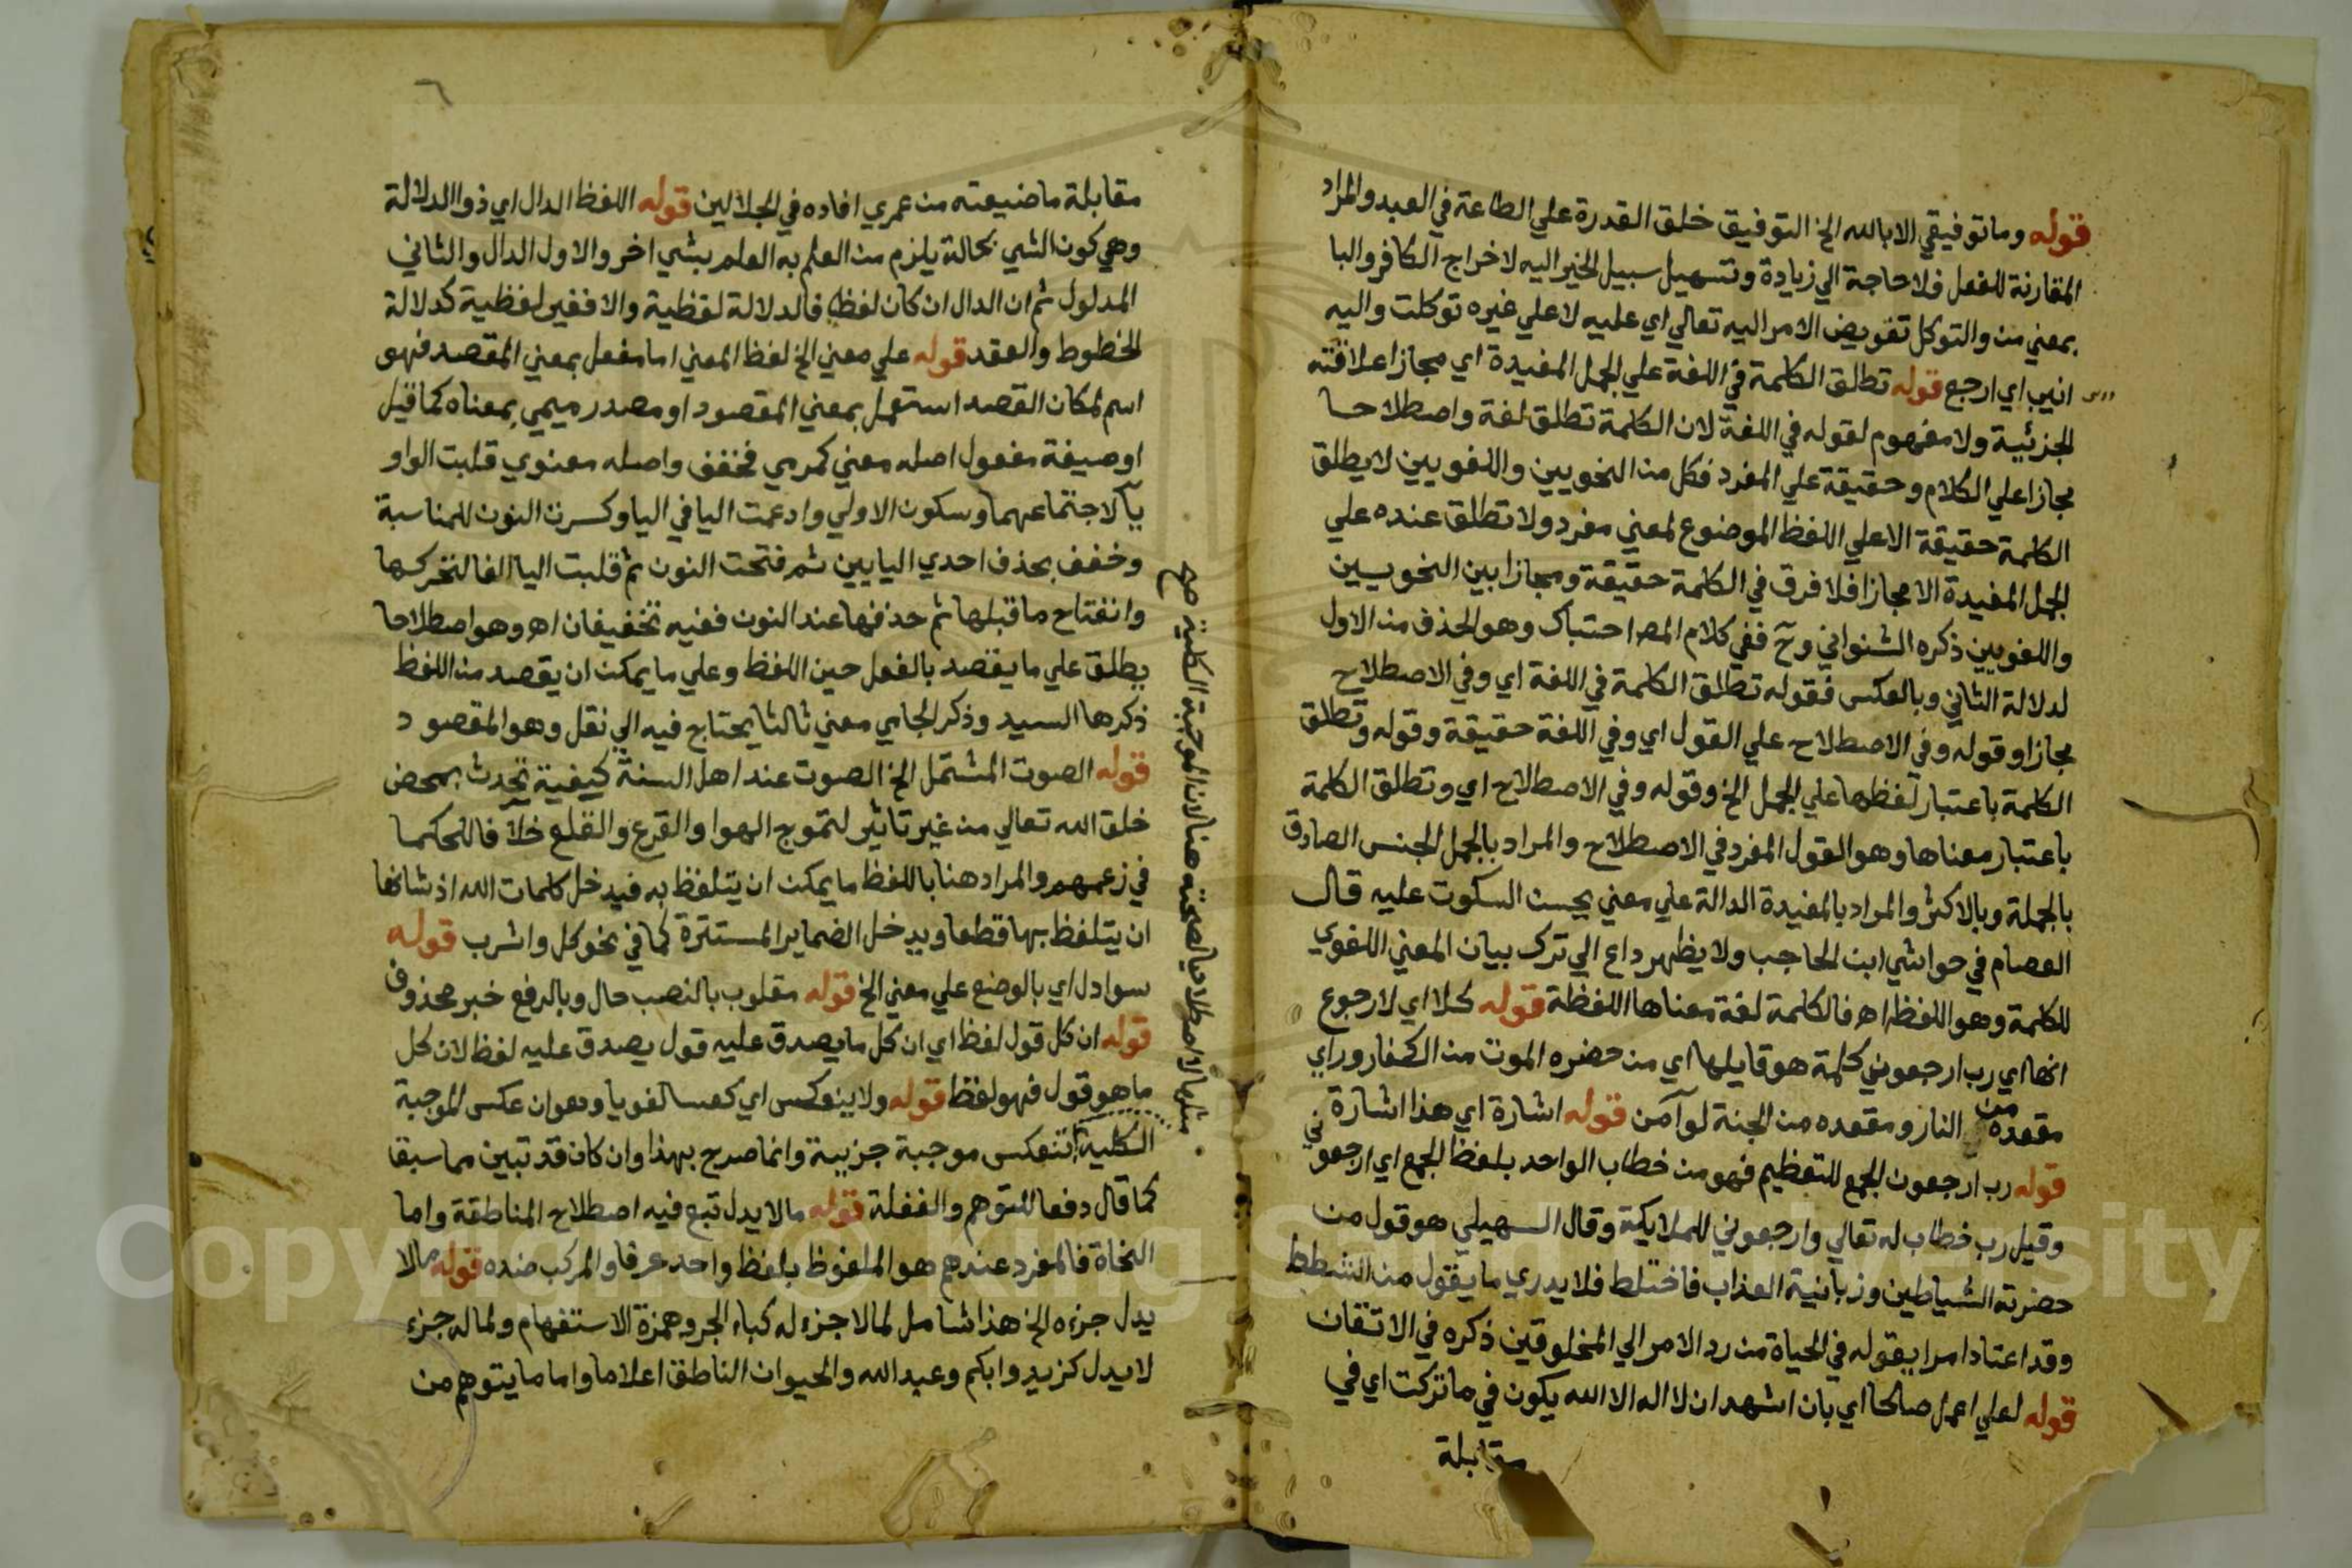 قوله وما توفيقي الا بالله الخ التوفيق خلق القدرة علي الطاعة في العبد والمراد
المقارنة للفعل فلا حاجة الي زيادة وتسهيل سبيل الخير اليه لاخراج الكافر والبا
بمعني من والتوكل تفويض الامر اليه تعالي اي عليه لا علي غيره توكلت واليه
انيب اي ارجع قوله تطلق الكلمة في اللغة علي الجمل المفيدة اي مجازا علاقته
الجزئية ولا مفهوم لقوله في اللغة لان الكلمة تطلق لغة واصطلاحا
مجازا علي الكلام وحقيقة علي المفرد فكل من النحويين واللغويين لا يطلق
الكلمة حقيقة الا علي اللفظ الموضوع لمعني مفرد ولا تطلق عنده علي
الجمل المفيدة الا مجازا فلا فرق في الكلمة حقيقة ومجازا بين النحويين
واللغويين ذكره الشنواني وح ففي كلام المص احتباك وهو الحذف من الاول
لدلالة الثاني وبالعكس فقوله تطلق الكلمة في اللغة اي وفي الاصطلاح
مجازا وقوله وفي الاصطلاح علي القول اي وفي اللغة حقيقة وقوله وتطلق
الكلمة باعتبار لفظها علي الجمل الخ وقوله وفي الاصطلاح اي وتطلق الكلمة
باعتبار معناها وهو القول المفرد في الاصطلاح والمراد بالجمل الجنس الصادق
بالجملة وبالاكثر والمراد بالمفيدة الدالة علي معني يحسن السكوت عليه قال
العصام في حواشي ابن الحاجب ولا يظهر داع الي ترك بيان المعني اللغوي
للكلمة وهو اللفظ اه فالكلمة لغة معناها اللفظة قوله كلا اي لا رجوع
انها اي رب ارجعوني كلمة هو قايلها اي من حضره الموت من الكفار وراي
مقعده من النار ومقعده من الجنة لو آمن قوله اشارة اي هذا اشارة
قوله رب ارجعون الجمع للتعظيم فهو من خطاب الواحد بلفظ الجمع اي ارجعوني
وقيل رب خطاب له تعالي وارجعوني للملايكة وقال السهيلي هو قول من
حضرته الشياطين وزبانية العذاب فاختلط فلا يدري ما يقول من الشطط
وقد اعتاد امرا يقوله في الحياة من رد الامر الي المخلوقين ذكره في الاتقان
قوله لعلي اعمل صالحا اي بان اشهد ان لا اله الا الله يكون في ما تركت اي في
مقابلة
٦
مقابلة ما ضيعته من عمري افاده في الجلالين قوله اللفظ الدال اي ذو الدلالة
وهي كون الشي بحالة يلزم من العلم به العلم بشي اخر والاول الدال والثاني
المدلول ثم ان الدال ان كان لفظا فالدلالة لفظية والا فغير لفظية كدلالة
الخطوط والعقد قوله علي معني الخ لفظ المعني اما مفعل بمعني المقصد فهو
اسم لمكان القصد استعمل بمعني المقصود او مصدر ميمي بمعناه كما قيل
او صيغة مفعول اصله معني كمرمي فخفف واصله معنوي قلبت الواو
يآ لاجتماعهما وسكون الاولي وادغمت اليا في اليا وكسرت النون للمناسبة
وخفف بحذف احدي اليايين ثم فتحت النون ثم قلبت اليا الفا لتحركها
وانفتاح ما قبلها ثم حذفها عند النون ففيه تخفيفان اه وهو اصطلاحا
يطلق علي ما يقصد بالفعل حين اللفظ وعلي ما يمكن ان يقصد من اللفظ
ذكرها السيد وذكر الجامي معني ثالثا يحتاج فيه الي نقل وهو المقصود
قوله الصوت المشتمل الخ الصوت عند اهل السنة كيفية تحدث بمحض
خلق الله تعالي من غير تاثير لتموج الهوا والقرع والقلع خلافا للحكما
في زعمهم والمراد هنا باللفظ ما يمكن ان يتلفظ به فيدخل كلمات الله اذ شانها
ان يتلفظ بها قطعا ويدخل الضماير المستترة كما في نحو كل واشرب قوله
سوا دل اي بالوضع علي معني الخ قوله مقلوب بالنصب حال وبالرفع خبر محذوف
قوله ان كل قول لفظ اي ان كل ما يصدق عليه قول يصدق عليه لفظ لان كل
ما هو قول فهو لفظ قوله ولا ينعكس اي كعسا لغويا وهو ان عكس الموجبة
الكلية تنعكس موجبة جزيية وانما صرح بهذا وان كان قد تبين مما سبقا
كما قال دفعا للتوهم والغفلة قوله ما لا يدل تبع فيه اصطلاح المناطقة واما
النحاة فالمفرد عندهم هو الملفوظ بلفظ واحد عرفا والمركب ضده قوله ما لا
يدل جزءه الخ هذا شامل لما لا جزء له كباء الجر وهمزة الاستفهام ولما له جزء
لا يدل كزيد وابكم وعبد الله والحيوان الناطق اعلاما واما ما يتوهم من
مثلها لا اصطلاحيا لصحته هنا لان الموجبة الكلية صح
Copyright © King Saud University